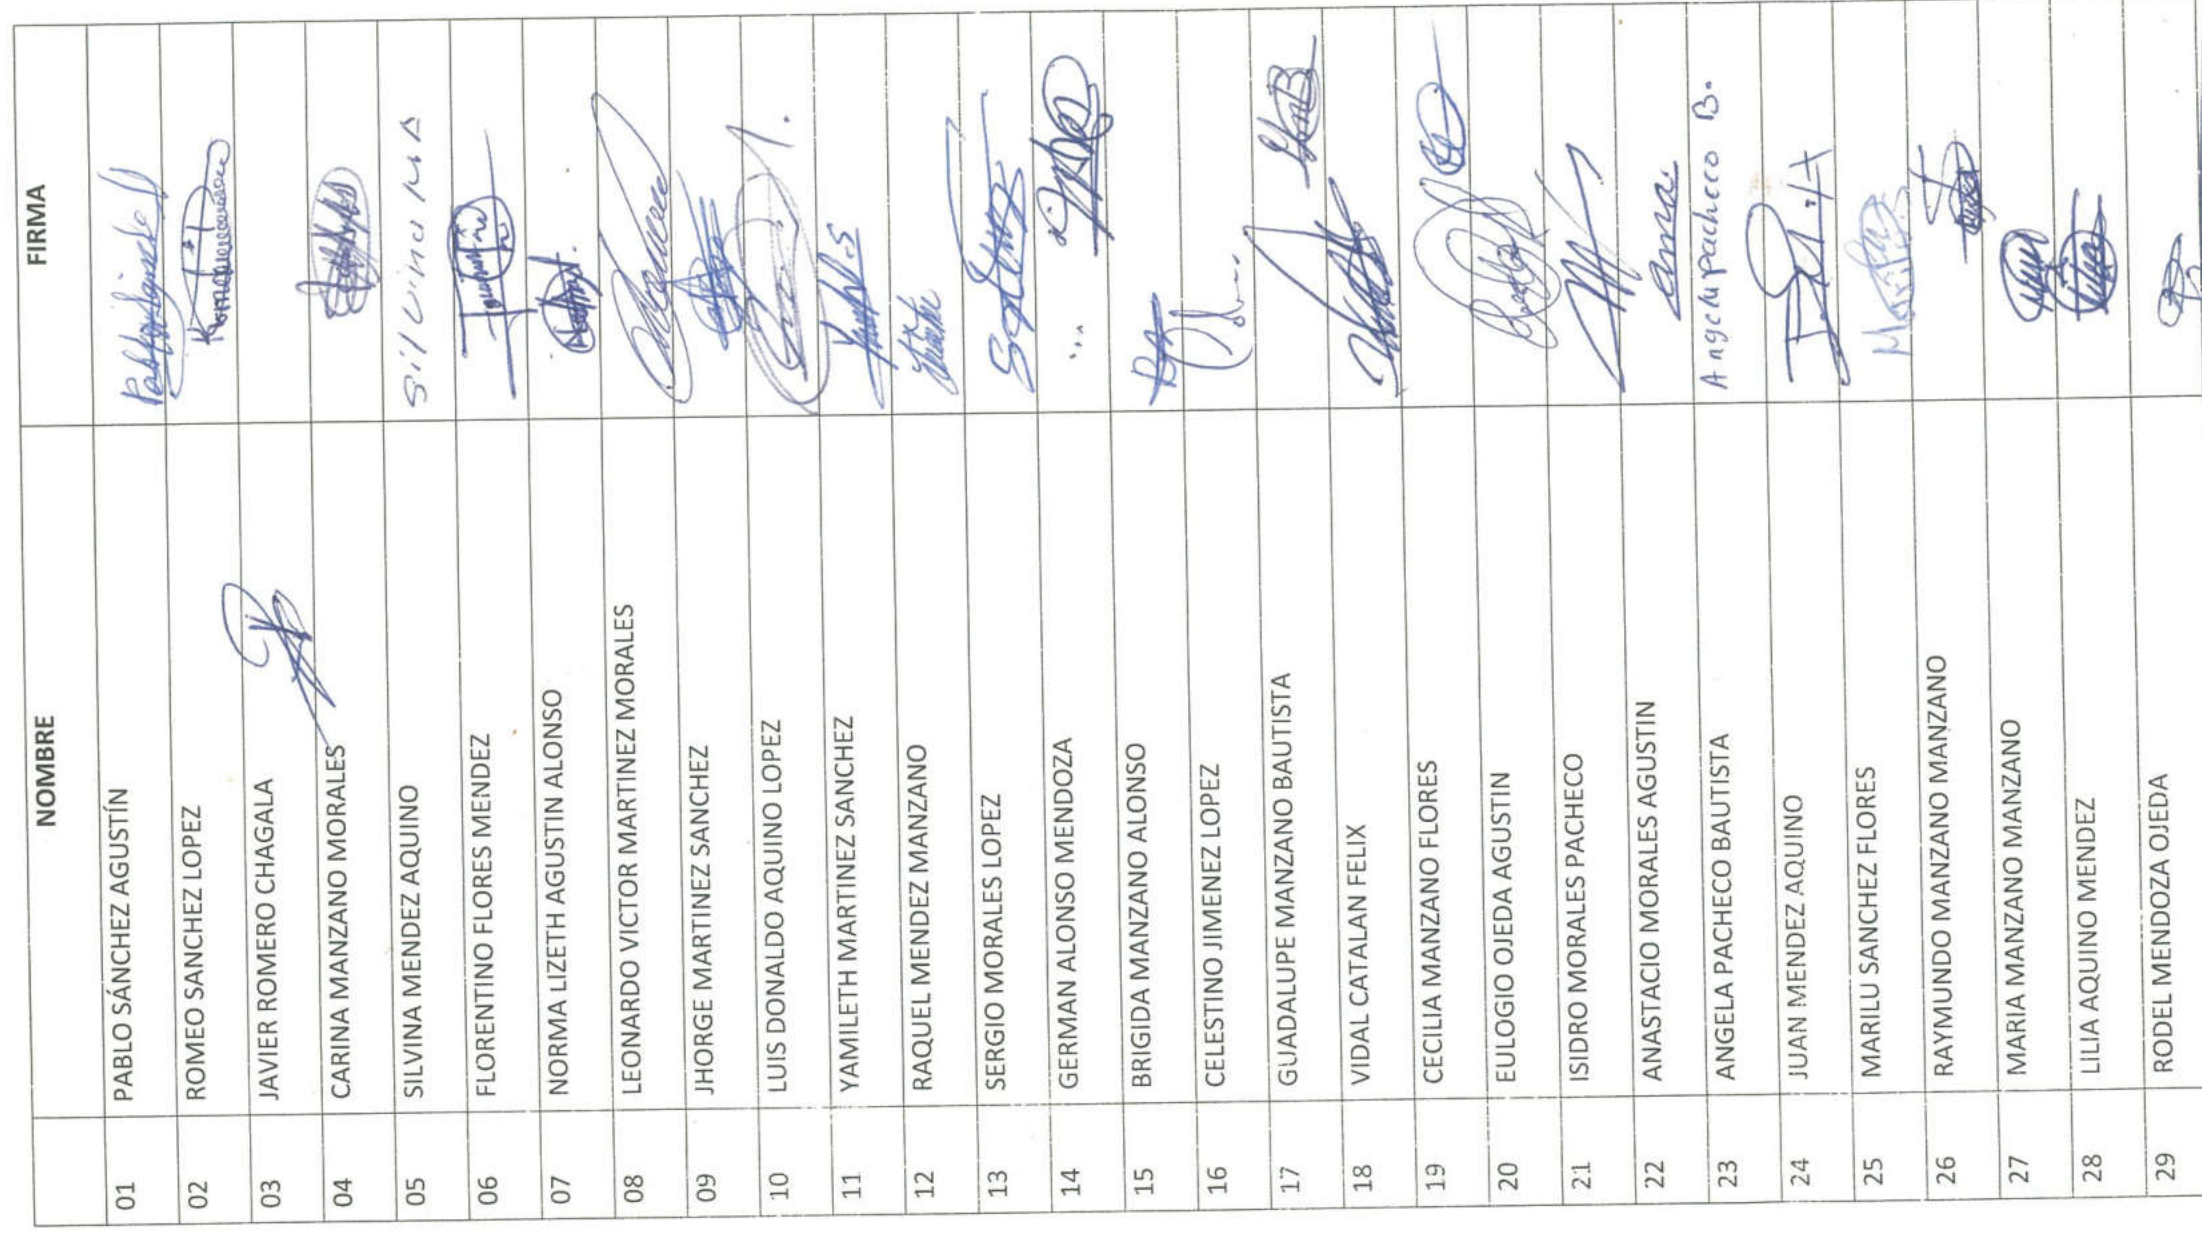 NOMBRE FIRMA
01 PABLO SÁNCHEZ AGUSTÍN
02 ROMEO SANCHEZ LOPEZ
03 JAVIER ROMERO CHAGALA
04 CARINA MANZANO MORALES
05 SILVINA MENDEZ AQUINO Silvina M A
06 FLORENTINO FLORES MENDEZ
07 NORMA LIZETH AGUSTIN ALONSO
08 LEONARDO VICTOR MARTINEZ MORALES
09 JHORGE MARTINEZ SANCHEZ
10 LUIS DONALDO AQUINO LOPEZ
11 YAMILETH MARTINEZ SANCHEZ
12 RAQUEL MENDEZ MANZANO
13 SERGIO MORALES LOPEZ
14 GERMAN ALONSO MENDOZA
15 BRIGIDA MANZANO ALONSO
16 CELESTINO JIMENEZ LOPEZ
17 GUADALUPE MANZANO BAUTISTA
18 VIDAL CATALAN FELIX
19 CECILIA MANZANO FLORES
20 EULOGIO OJEDA AGUSTIN
21 ISIDRO MORALES PACHECO
22 ANASTACIO MORALES AGUSTIN
23 ANGELA PACHECO BAUTISTA Angela pacheco B.
24 JUAN MENDEZ AQUINO
25 MARILU SANCHEZ FLORES
26 RAYMUNDO MANZANO MANZANO
27 MARIA MANZANO MANZANO
28 LILIA AQUINO MENDEZ
29 RODEL MENDOZA OJEDA